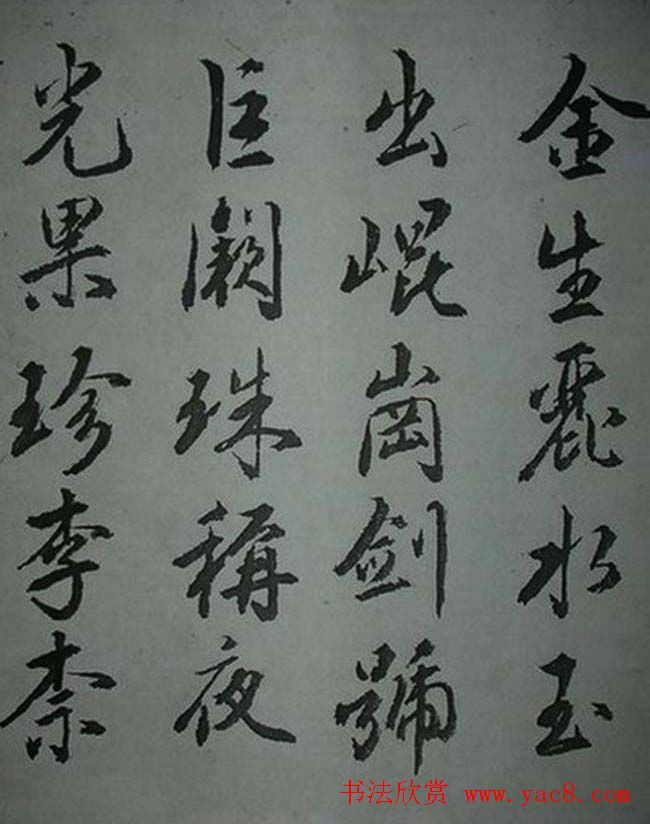 金生麗水玉
出崐崗剑號
巨闕珠稱夜
光果珍李柰
书法欣赏 www.yac8.com